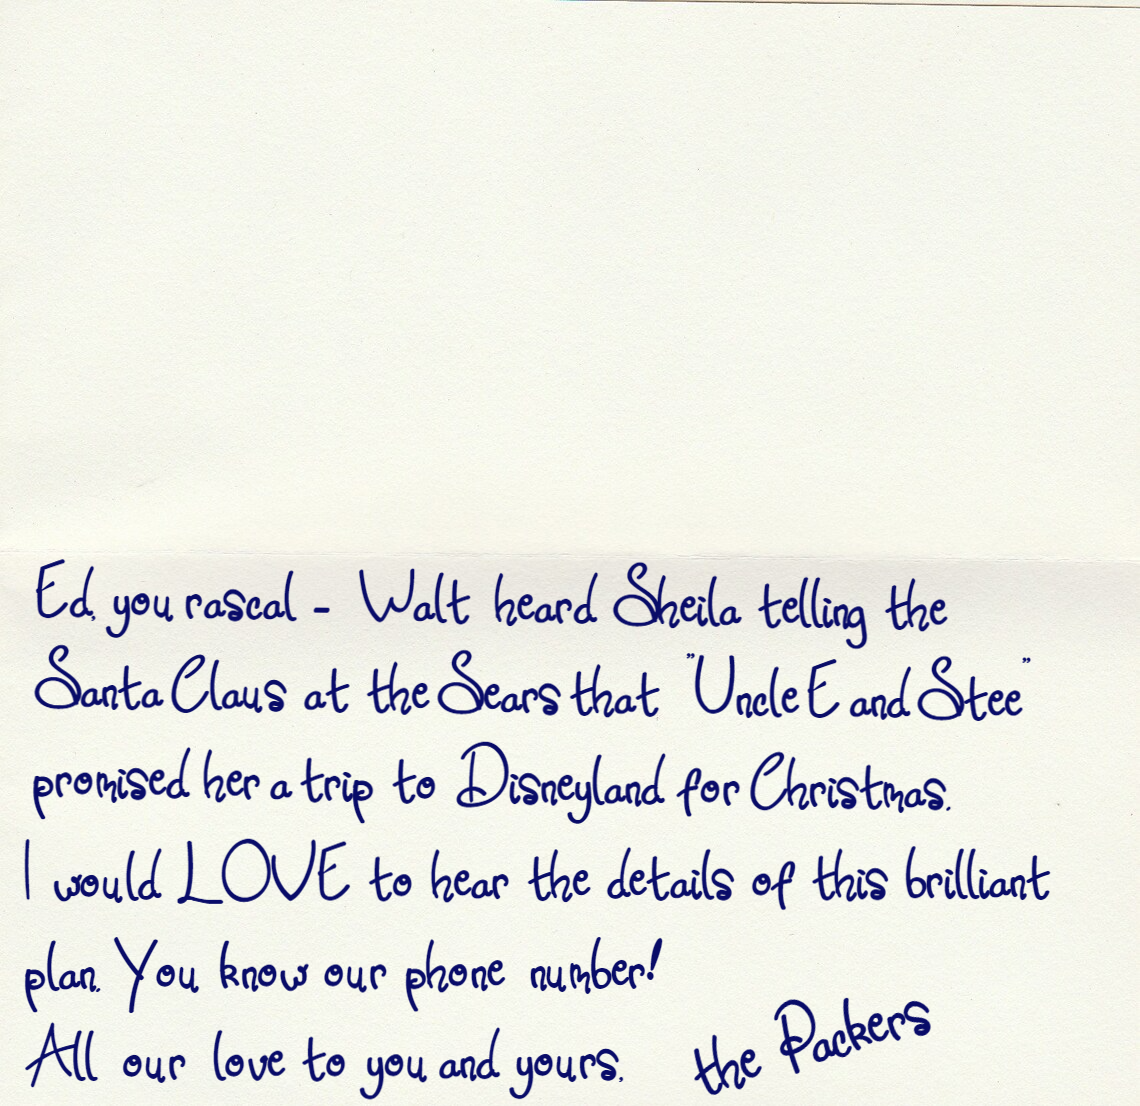 Ed, you rascal - Walt heard Sheila telling the
Santa Claus at the Sears that "Uncle E and Stee"
promised her a trip to Disneyland for Christmas.
I would LOVE to hear the details of this brilliant
plan. You know our phone number!
All our love to you and yours, the Packers